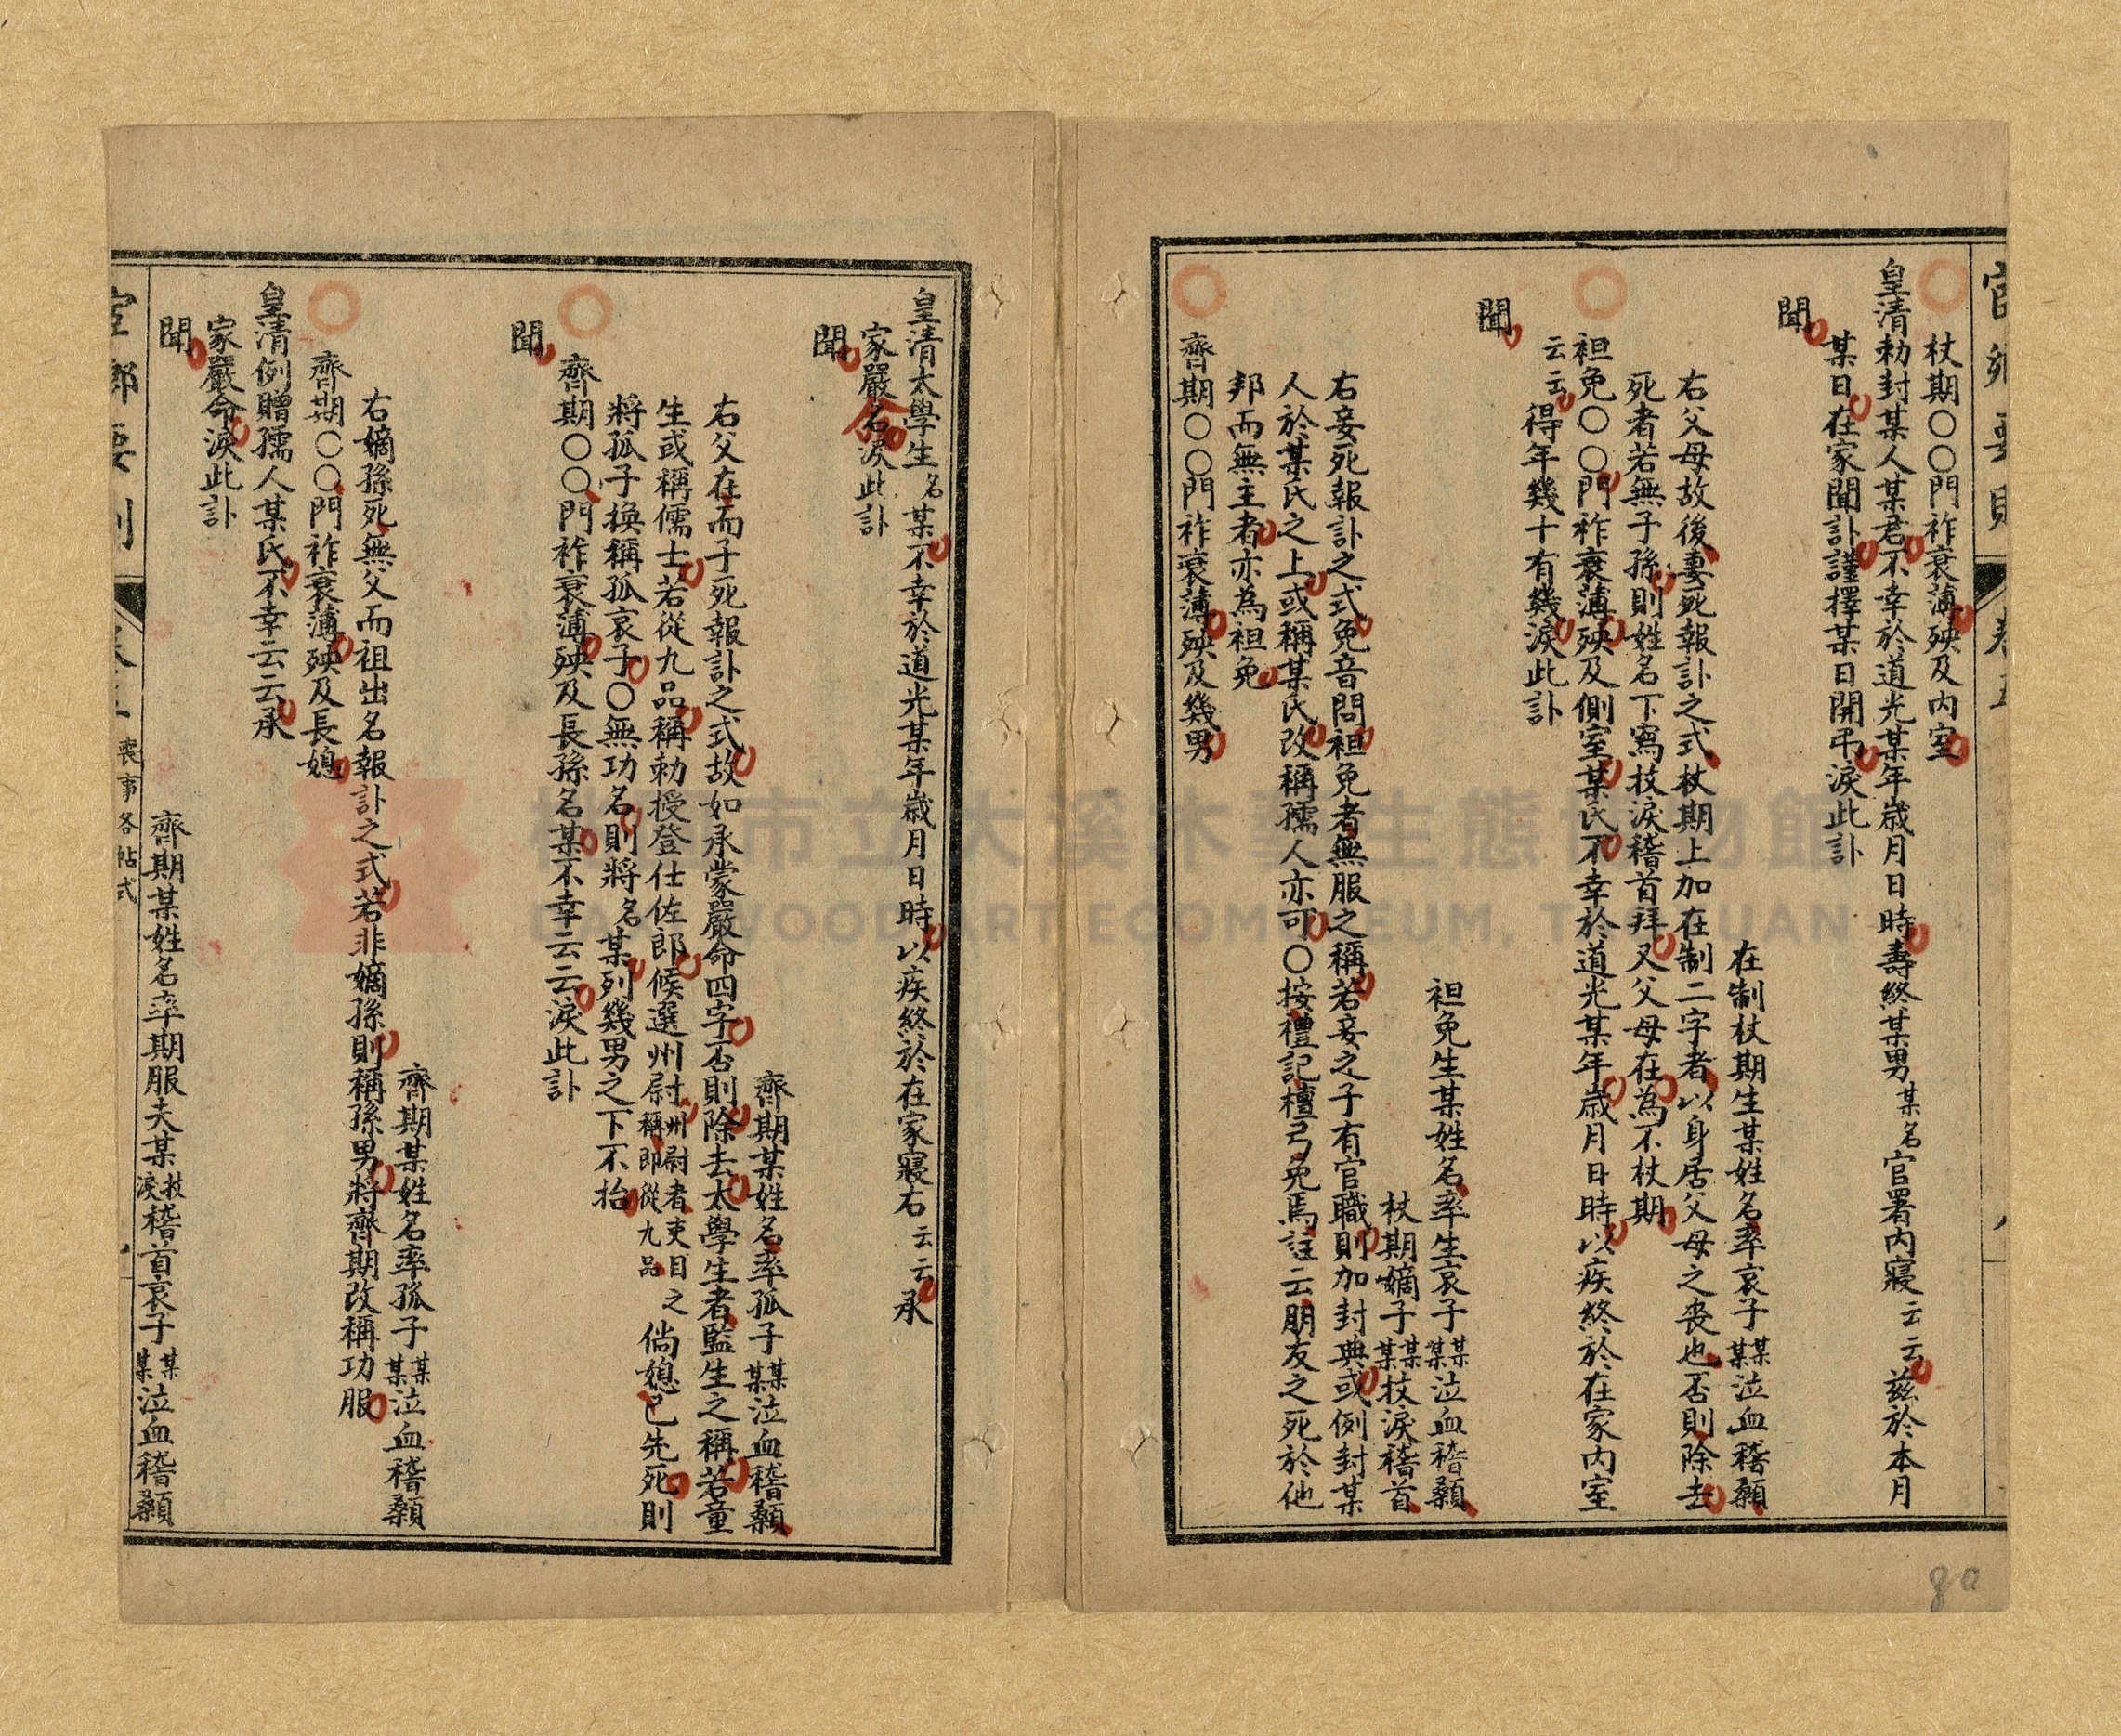 杖期○○門祚衰薄殃及內室
皇清勅封某人某君不幸於道光某年歲月日時壽終某男某名官署內寢云云茲於本月
某日在家聞訃謹擇某日開弔淚此訃
聞
在制杖期生某姓名率哀子某某泣血稽顙
右父母故後妻死報訃之式杖期上加在制二字者以身居父母之喪也否則除去
死者若無子孫則姓名下寫抆淚稽首拜又父母在為不杖期
袒免○○門祚衰薄殃及側室某氏不幸於道光某年歲月日時以疾終於在家內室
云云得年幾十有幾淚此訃
聞
袒免生某姓名率生哀子某某泣血稽顙
杖期嫡子某某抆淚稽首
右妾死報訃之式免音問袒免者無服之稱若妾之子有官職則加封典或例封某
人於某氏之上或稱某氏改稱孺人亦可○按禮記檀弓免焉註云朋友之死於他
邦而無主者亦為袒免
齊期○○門祚衰薄殃及幾男
皇清太學生名某不幸於道光某年歲月日時以疾終於在家寢右云云承
家嚴名淚此訃
命
聞
齊期某姓名率孤子某某泣血稽顙
右父在而子死報訃之式故如承蒙嚴命四字否則除去太學生者監生之稱若童
生或稱儒士若從九品稱勅授登仕佐郎候選州尉州尉者吏目之稱即從九品倘媳已先死則
將孤子換稱孤哀子○無功名則將名某列幾男之下不抬
齊期○○門祚衰薄殃及長孫名某不幸云云淚此訃
聞
齊期某姓名率孤子某某泣血稽顙
右嫡孫死無父而祖出名報訃之式若非嫡孫則稱孫男將齊期改稱功服
齊期○○門祚衰薄殃及長媳
皇清例贈孺人某氏不幸云云承
家嚴命淚此訃
聞
齊期某姓名率期服夫某抆淚稽首哀子某某泣血稽顙
喪事各帖式
80
桃園市立大溪木藝生態博物館
DAXI WOOD ART ECOMUSEUM, TAOYUAN